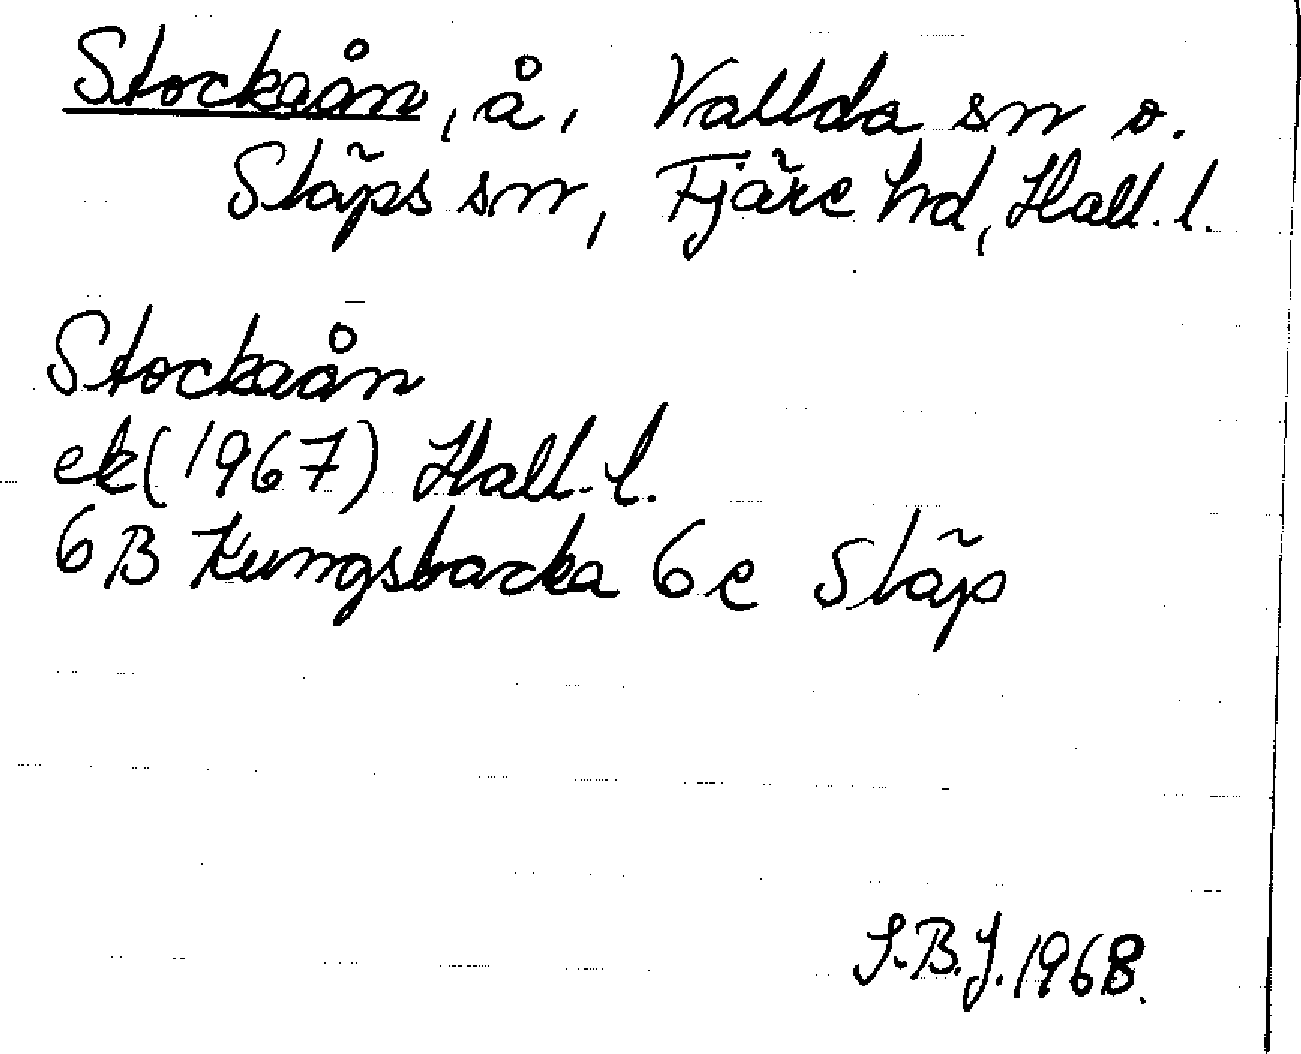 Stockaån, å, Vallda sn o.
Släps sn, Fjäre hd, Hall. l.
Stockaån
ek (1967) Hall. l.
6 B Kungsbacka 6 c Släp
S.B.J. 1968.